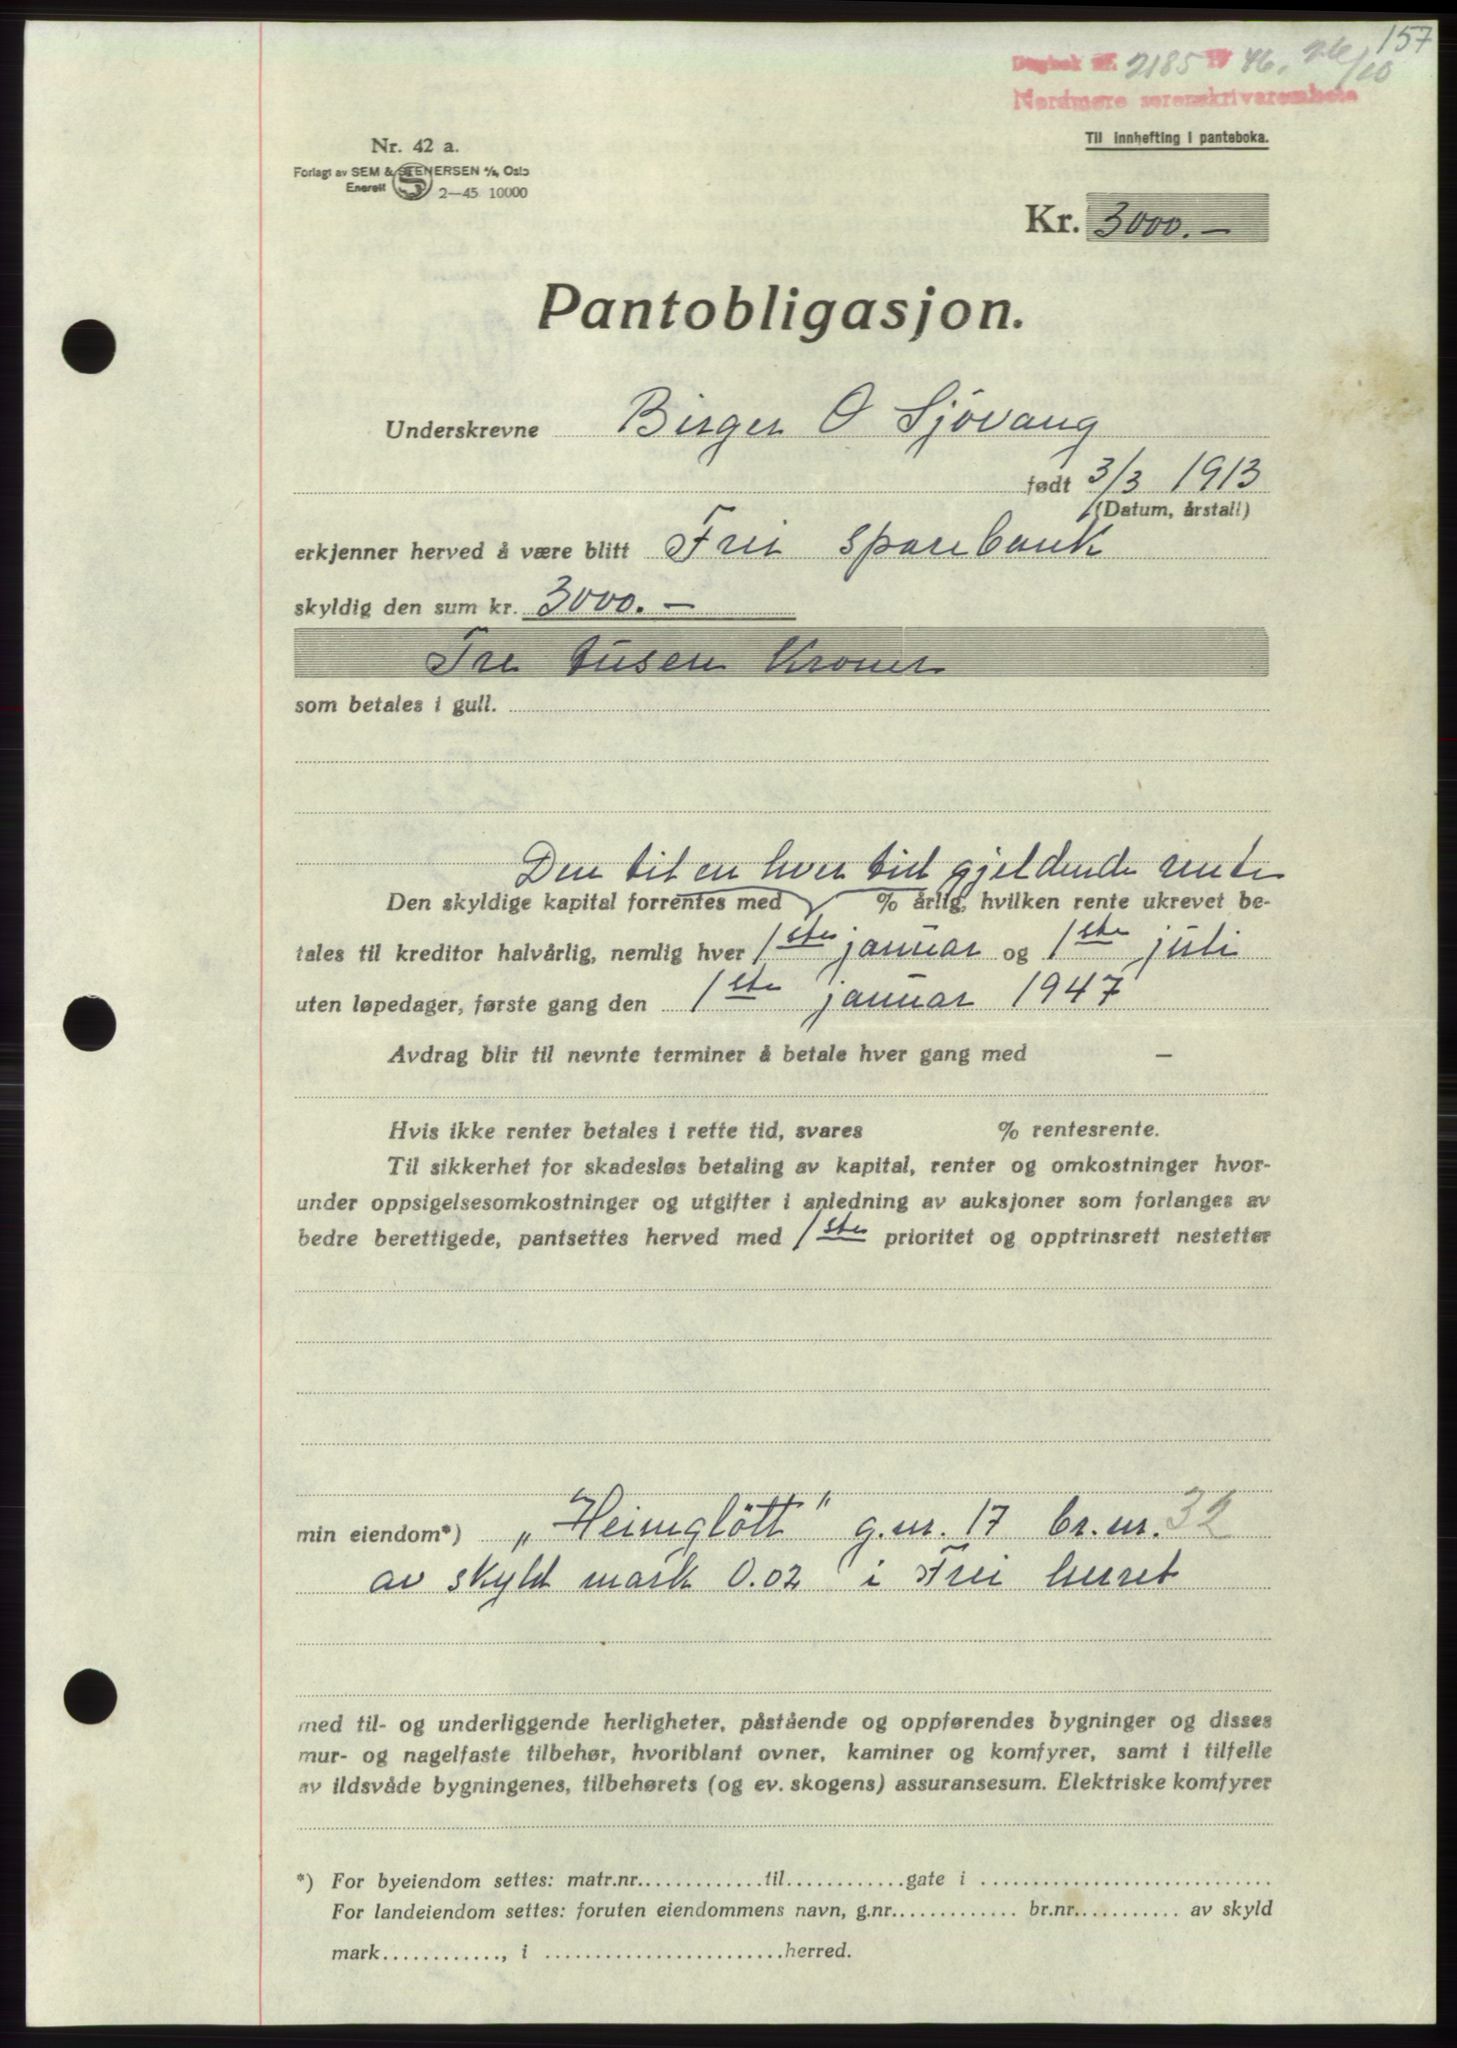 157
Dagbok nr. 2185 19 46. 26/10
Nordmøre sorenskrivarembete
Til innhefting i panteboka.
Nr. 42 a.
Forlagt av SEM & STENERSEN A/S, Oslo
Enerett
2—45 10000
Kr. 3000.—
Pantobligasjon.
Underskrevne Birger O Sjøvang
født 3/3 1913
(Datum, årstall)
erkjenner herved å være blitt Frei sparebank
skyldig den sum kr. 3000.—
Tre tusen Kroner
som betales i gull.
Den til en hver tid gjeldende rente
Den skyldige kapital forrentes med % årlig, hvilken rente ukrevet be-
tales til kreditor halvårlig, nemlig hver 1ste januar og 1ste juli
uten løpedager, første gang den 1ste januar 1947
Avdrag blir til nevnte terminer å betale hver gang med —
Hvis ikke renter betales i rette tid, svares % rentesrente.
Til sikkerhet for skadesløs betaling av kapital, renter og omkostninger hvor-
under oppsigelsesomkostninger og utgifter i anledning av auksjoner som forlanges av
bedre berettigede, pantsettes herved med 1ste prioritet og opptrinsrett nestetter
min eiendom*) „Heimgløtt" g.nr. 17 br.nr. 32
av skyld mark 0.02 i Frei herret
med til- og underliggende herligheter, påstående og oppførendes bygninger og disses
mur- og nagelfaste tilbehør, hvoriblant ovner, kaminer og komfyrer, samt i tilfelle
av ildsvåde bygningenes, tilbehørets (og ev. skogens) assuransesum. Elektriske komfyrer
*) For byeiendom settes: matr.nr.............til............gate i .............................
For landeiendom settes: foruten eiendommens navn, g.nr............. br.nr........... av skyld
mark............, i ........................herred.